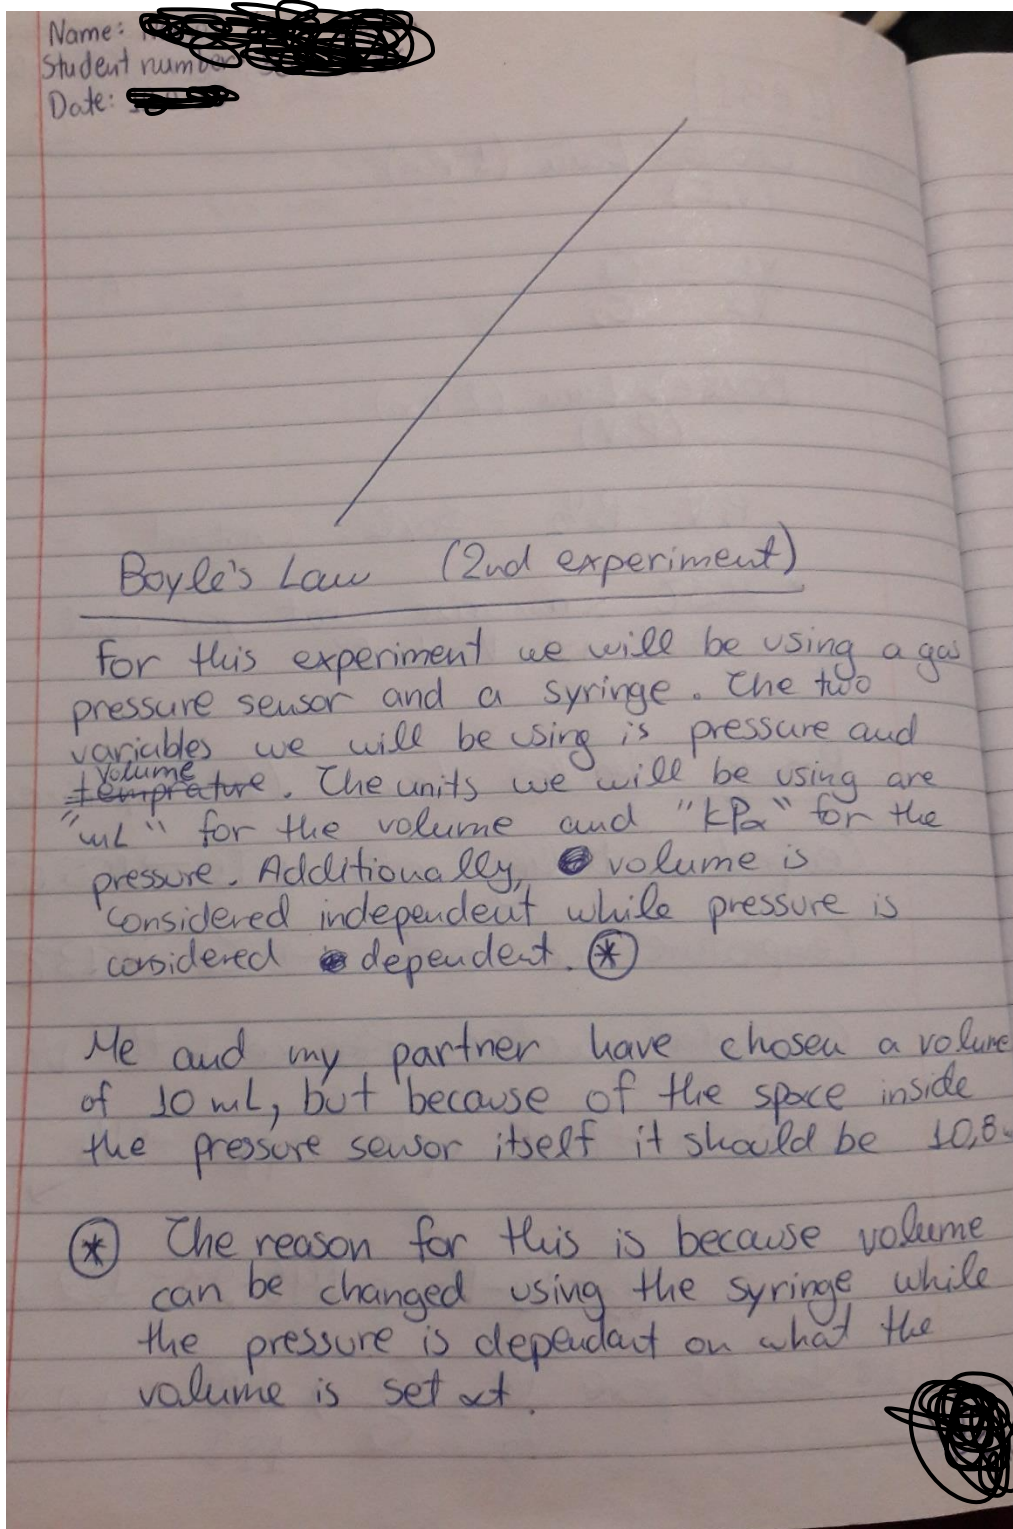 Name:
Student number
Date:
Boyle's Law (2nd experiment)
For this experiment we will be using a gas
pressure sensor and a syringe. The two
variables we will be using is pressure and
volume
temprature. The units we will be using are
"mL" for the volume and "kPa" for the
pressure. Additionally, volume is
considered independent while pressure is
considered dependent. *
Me and my partner have chosen a volume
of 10 mL, but because of the space inside
the pressure sensor itself it should be 10,8
* The reason for this is because volume
can be changed using the syringe while
the pressure is dependant on what the
volume is set at.